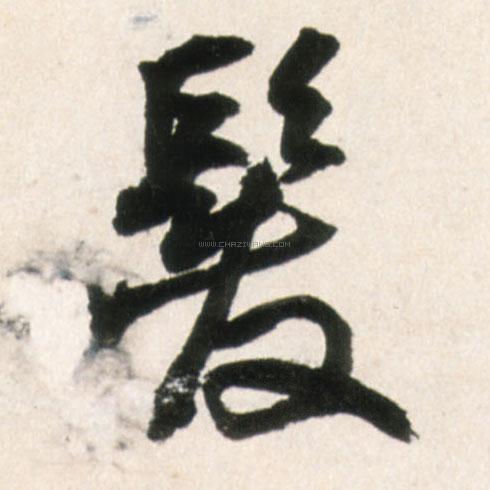 髮
WWW.CHAZIWANG.COM